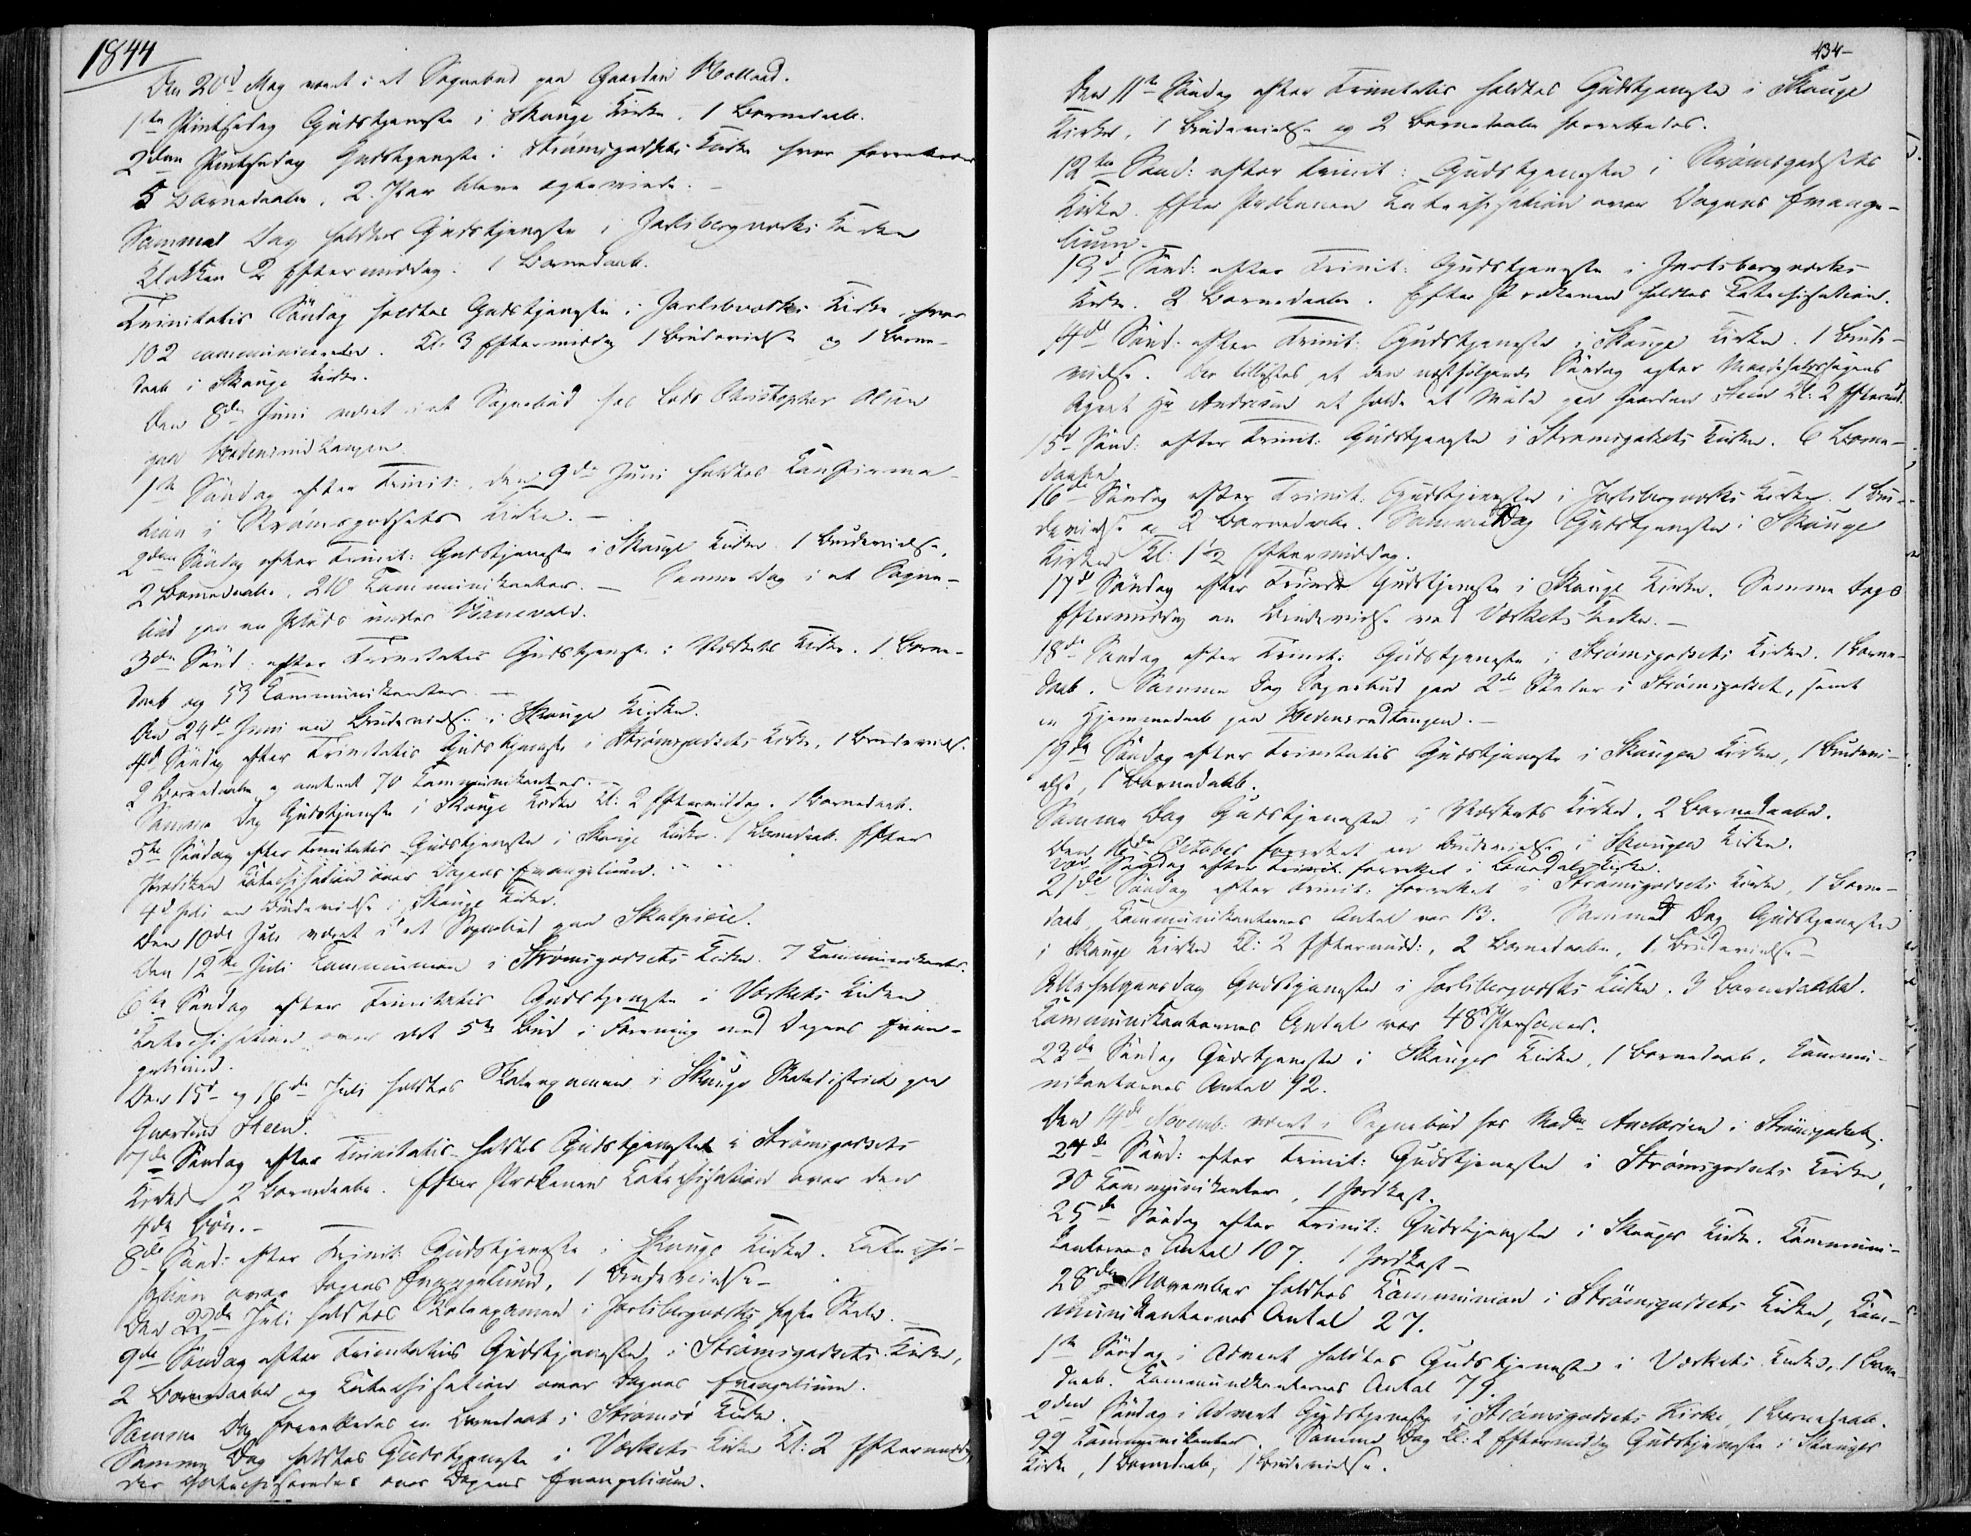 1844
Den 20d May været i et Sognebud paa Gaarden
1te Pintsedag Gudstjeneste i Skouge Kirke. 1 Barnedaab.
2den Pintsedag Gudstjeneste i Strømsgodsets Kirke hvor forrettedes
5 Barnedaabe, 2 Par bleve egteviede. –
Samme Dag holdtes Gudstjeneste i Jarlsbergværks Kirke
Klokken 2 Eftermiddag. 1 Barnedaab.
Trinitatis Søndag holdtes Gudstjeneste i Kirke, hvor
102 communicerede. Kl: 3 Eftermiddag 1 Brudevielse og 1 Barne-
daab i Skouge Kirke.
Den 8de Juni været i et Sognebud hos Christopher Olsen
paa
1te Søndag efter Trinit: den 9de Juni holdtes Confirma-
tion i Strømsgodsets Kirke. –
2den Søndag efter Trinit: Gudstjeneste i Skouge Kirke. 1 Brudevielse,
2 Barnedaabe, Communikantere. – Samme Dag i et Sogne-
bud paa en Plads under
3die Sønd: efter Trinitatis Gudstjeneste i Værkets Kirke. 1 Barne-
daab og 53 Communikanter. –
Den 24de Juni en Brudevielse i Skouge Kirke.
4d Søndag efter Trinitatis Gudstjeneste i Strømsgodsets Kirke, 1 Brudevielse
2 Barnedaabe og omtrent 70 Communikanter. –
Samme Dag Gudstjeneste i Skouge Kirke Kl: 2 Eftermiddag. 1 Barnedaab.
5te Søndag efter Trinitatis Gudstjeneste i Skouge Kirke. 1 Barnedaab. Efter
Prædiken Catechisation over Dagens Evangelium.
4d Juli en Brudevielse i Skouge Kirke.
Den 10de Juli været i et Sognebud paa
Den 12te Juli Communion i Strømsgodsets Kirke. 7 Communikanter.
6te Søndag efter Trinitatis Gudstjeneste i Værkets Kirke
Catechisation over det 5te Bud i Forening med Dagens Evan-
gelium.
Den 15d og 16de Juli holdtes Skoleexamen i Skouge Skoledistrict paa
Gaarden Steen.
7de Søndag efter Trinitatis holdtes Gudstjeneste i Strømsgodsets
Kirke 2 Barnedaabe. Efter Prækenen Catechisation over den
4de Bøn. –
8de Sønd: efter Trinit: Gudstjeneste i Skouge Kirke. Catechi-
sation over Dagens Evangelium, 1 Brudevielse –
Den 22de Juli holdtes Skoleexamen i Jarlsbergværks faste Skole. –
9de Søndag efter Trinitatis Gudstjeneste i Strømsgodsets Kirke,
2 Barnedaabe og Catechisation over Dagens Evangelium.
Samme Dag forrettedes en Barnedaab i Strømsø Kirke.
Samme Dag holdtes Gudstjeneste i Værkets Kirke Kl: 2 Eftermiddag
der Catechiseredes over Dagens Evangelium.
434–
Den 11te Søndag efter Trinitatis holdtes Gudstjeneste i Skouge
Kirke, 1 Brudevielse og 2 Barnedaabe forrettedes.
12te Sønd: efter Trinit: Gudstjeneste i Strømsgodsets
Kirke. Efter Prækenen Catechisation over Dagens Evange-
lium. –
13d Sønd: efter Trinit: Gudstjeneste i Jarlsbergværks
Kirke. 2 Barnedaabe. Efter Prækenen holdtes Catechisation.
14de Sønd: efter Trinit: Gudstjeneste i Skouge Kirke. 1 Brude-
vielse. Der tillystes at den næstfølgende Søndag agter
Agent Hr Andresen at holde et Møde paa Gaarden Steen Kl: 2 Eftermid.
15d Sønd: efter Trinit: Gudstjeneste i Strømsgodsets Kirke. 6 Barne-
daaber.
16de Søndag efter Trinit: Gudstjeneste i Jarlsbergværks Kirke. 1 Bru-
devielse og 2 Barnedaabe. Samme Dag Gudstjeneste i Skouge
Kirke Kl: 1 1/2 Eftermiddag.
17de Søndag efter Trinit: Gudstjeneste i Skouge Kirke. Samme Dags
Eftermiddag en Brudevielse ved Værkets Kirke. –
18de Søndag efter Trinit: Gudstjeneste i Strømsgodsets Kirke. 1 Barne-
daab. Samme Dag Sognebud paa 2de Steder i Strømsgodset, samt
en Hjemmedaab paa Hedensrudtangen. –
19de Søndag efter Trinitatis Gudstjeneste i Skougen Kirke, 1 Brudevi-
else, 1 Barnedaab.
Samme Dag Gudstjeneste i Værkets Kirke. 2 Barnedaabe.
Den 16de October forrettet en Brudevielse i Skougen Kirke.
Søndag efter Trinit: forrettet i Kirke.
21de Søndag efter Trinit: forrettet i Strømsgodsets Kirke, 1 Barne-
daab, Communikanternes Antal var 13. Samme Dag Gudstjeneste
i Skouge Kirke Kl: 2 Eftermidd:, 2 Barnedaabe, 1 Brudevielse –
Allehelgensdag Gudstjeneste i Jarlsbergværks Kirke. 3 Barnedaabe.
Communikanternes Antal var 48 Personer.
23de Søndag Gudstjeneste i Skouges Kirke, 1 Barnedaab, Commu-
nikanternes Antal 92.
Den 14de Novemb: været i Sognebud hos i Strømsgodset.
24de Sønd: efter Trinit: Gudstjeneste i Strømsgodsets Kirke,
30 Communikanter, 1 Jordkast.
25de Søndag efter Trinit: Gudstjeneste i Skouges Kirke. Communi-
kanternes Antal 107. 1 Jordkast –
28de November holdtes Communion i Strømsgodsets Kirke, Com-
munikanternes Antal 27.
1te Søndag i Advent holdtes Gudstjeneste i Værkets Kirke, 1 Barne-
daab. Communikanternes Antal 79.
2den Søndag i Advent Gudstjeneste i Strømsgodsets Kirke, 1 Barnedaab.
99 Communikanter. Samme Dag Kl: 2 Eftermiddag Gudstjeneste i Skouges
Kirke, 1 Barnedaab, 1 Brudevielse.